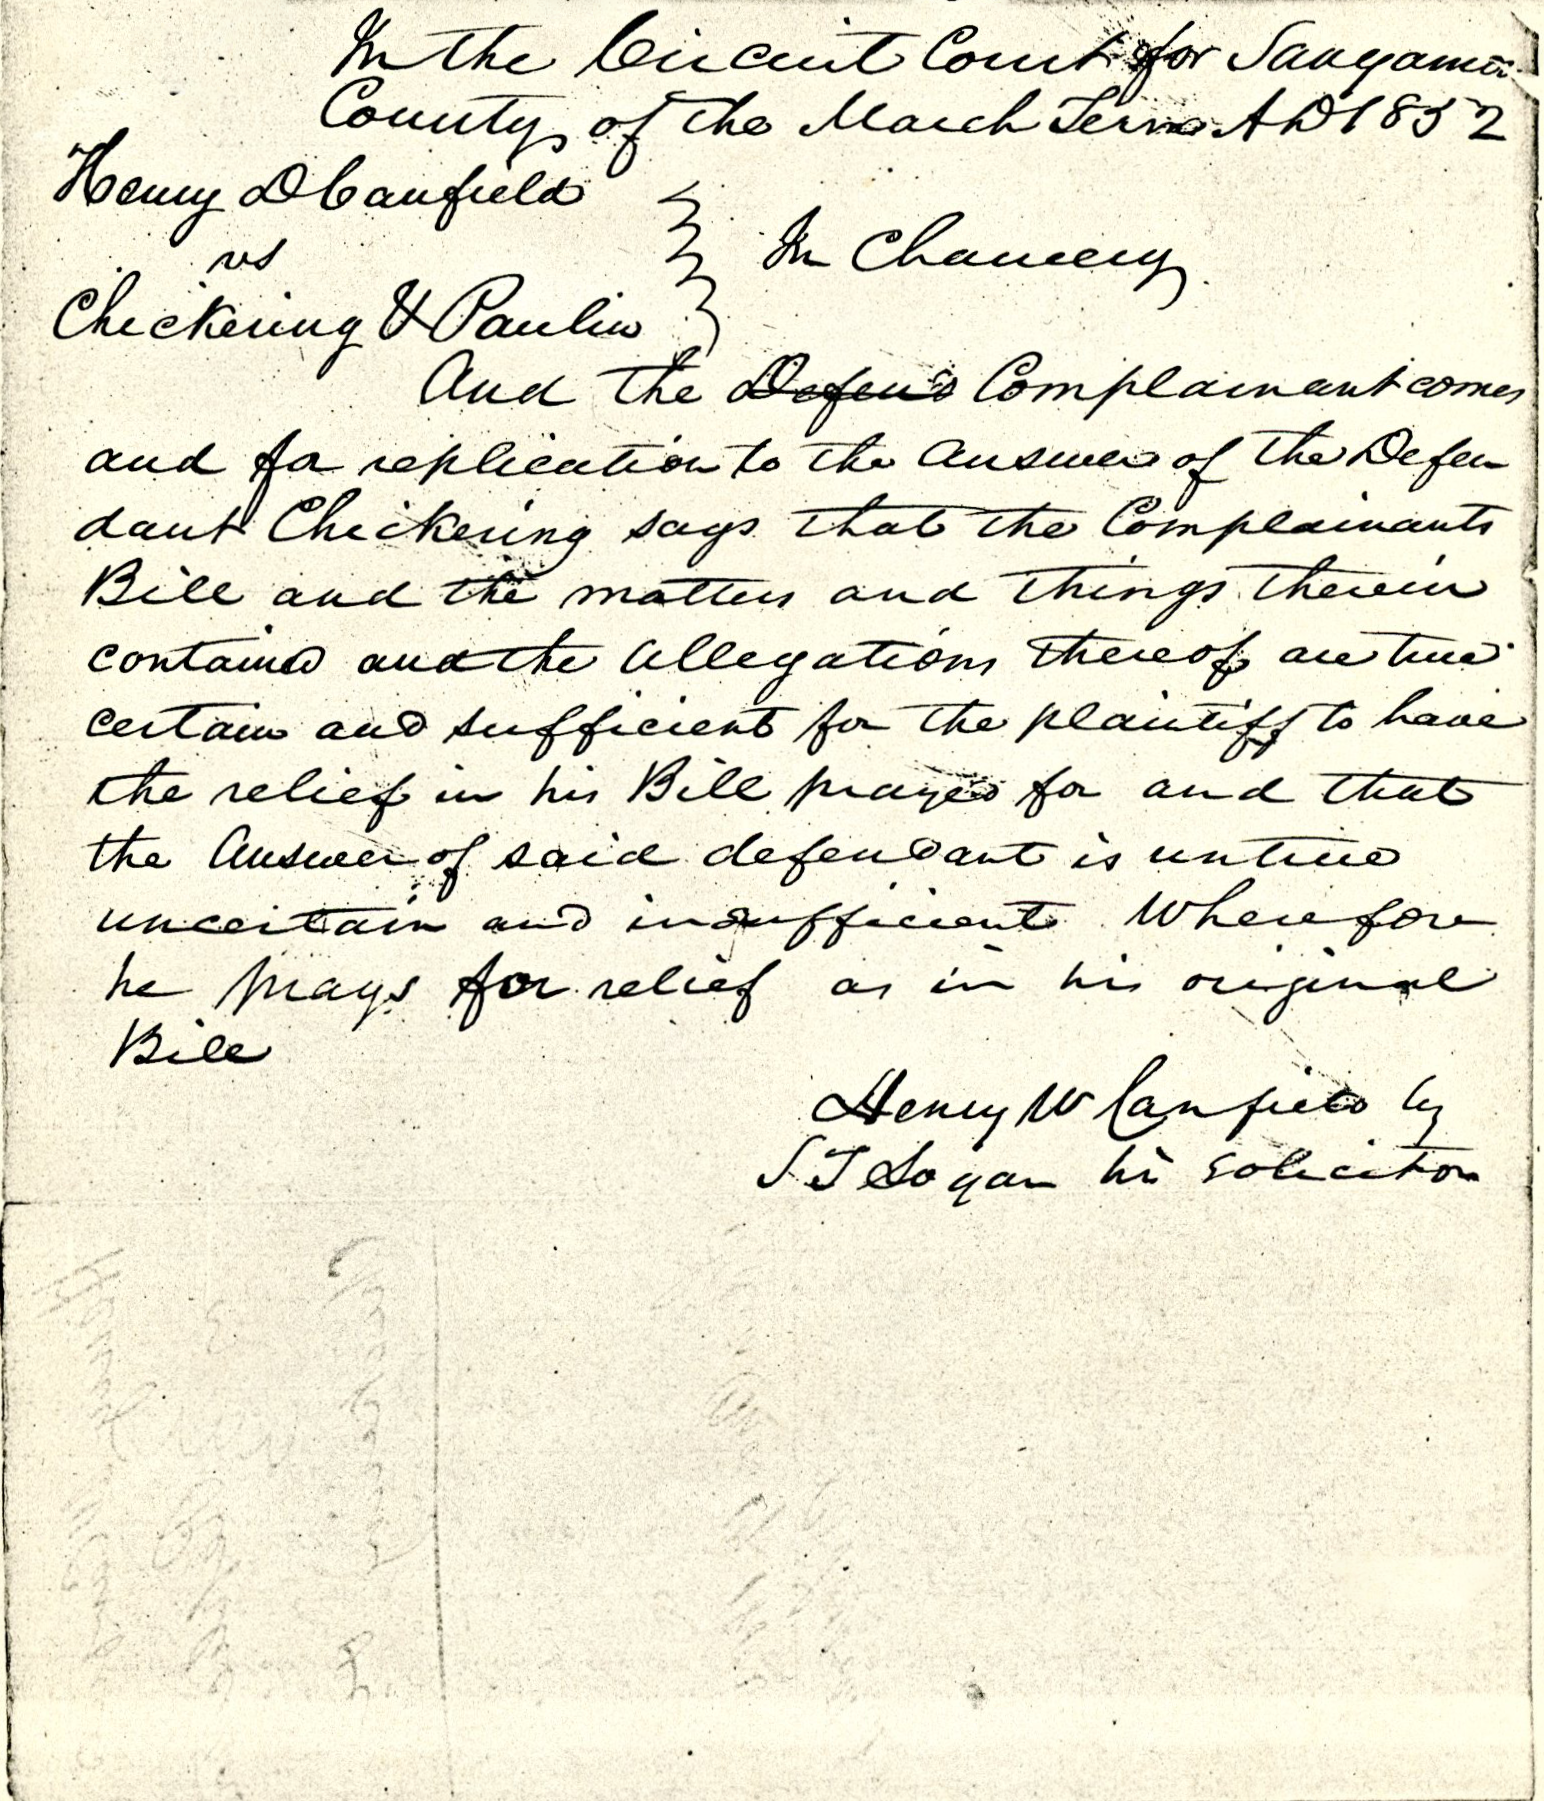 In the Circuit Court for Sangamon
County of the March Term A D 1852
Henry D Canfield
vs
In Chancery
Chickering & Paulin
And the Defend Complainant comes
and for replication to the Answer of the Defen
dant Chickering says that the Complainants
Bill and the matters and things therein
contained and the Allegations thereof are true
certain and sufficient for the plaintiff to have
the relief in his Bill prayed for and that
the Answer of said defendant is untrue
uncertain and insufficient Wherefore
he prays for relief as in his original
Bill
Henry W Canfield by
S T Logan his solicitor